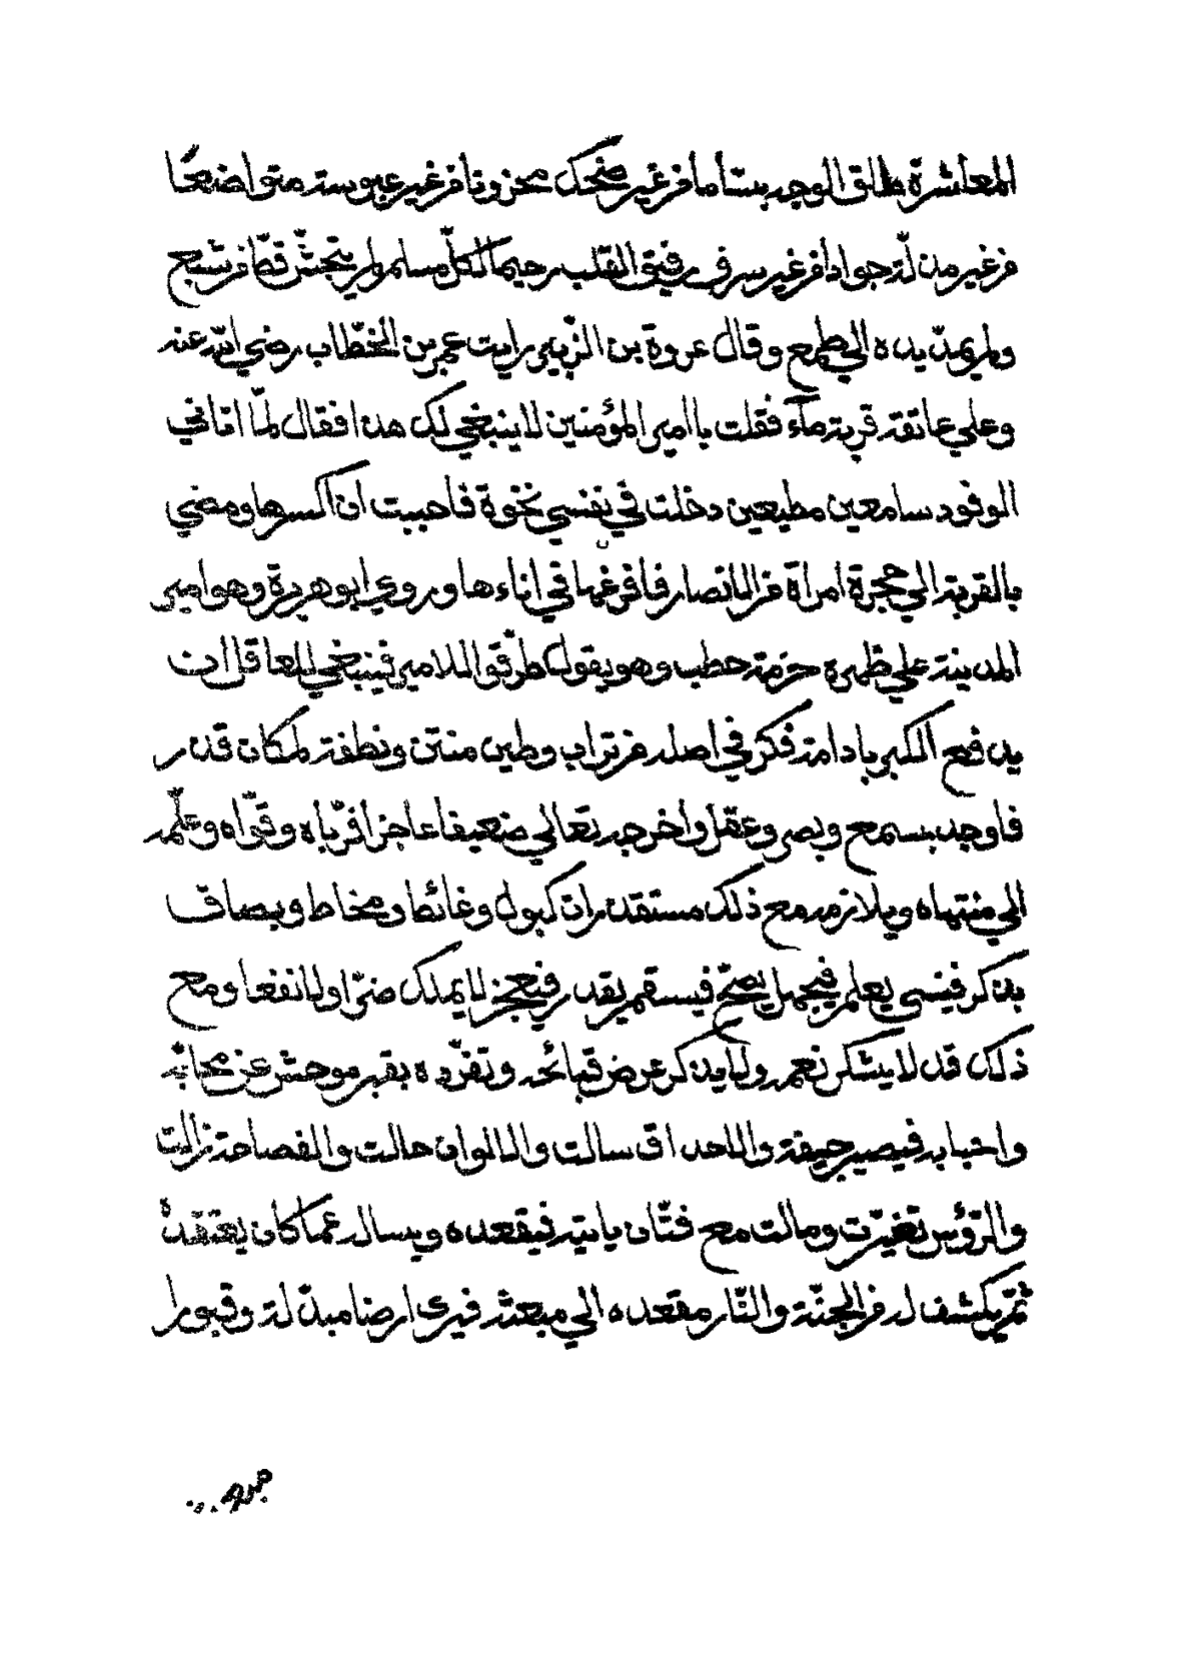 المعاشرة طلق الوجه بسّاما من غير ضحك محزونا من غير عبوسته متواضعًا
من غير مذلّة جوادا من غير سرف رقيق القلب رحيما لكلّ مسلم ولم يتجشّ قطّ من شبع
ولم يمدّ يده الي طمع وقال عروة بن الزّبير رايت عمر بن الخطّاب رضي الله عنه
وعلي عاتقه قربة ماء فقلت يا امير المؤمنين لا ينبغي لك هذا فقال لمّا اتاني
الوفود سامعين مطيعين دخلت في نفسي نخوة فاحببت ان اكسرها ومضي
بالقربة الي حجرة امراة من الانصار فافرغها في اناءها وروي ابو هريرة وهو امير
المدينة علي ظهره حزمة حطب وهو يقول طرّقوا للامير فينبغي للعاقل ان
يدفع الكبر بادامة فكر في اصله من تراب وطين منتن ونطفة لمكان قذر
فاوجد بسمع وبصر وعقل واخرجه تعالي ضعيفا عاجزا فربّاه وقوّاه وعلّمه
الي منتهاه ويلازمه مع ذلك مستقذرات كبول وغائط ومخاط وبصاق
يذكر فينسي يعلم فيجهل يصحّ فيسقم يقدر فيعجز لا يملك ضرّا ولا نفعا ومع
ذلك قد لا يشكر نعمه ولا يذكر عرض قبائحه وتفرّده بقبر موحش عن محابّه
واحبابه فيصير جيفة والاحداق سالت والالوان حالت والفصاحة زالت
والرّؤس تغيّرت ومالت مع فتّان ياتيه فيقعده ويساله عما كان يعتقده
ثمّ يكشف له من الجنّة والنّار مقعده الي مبعثه فيري ارضا مبدّلة وقبورا